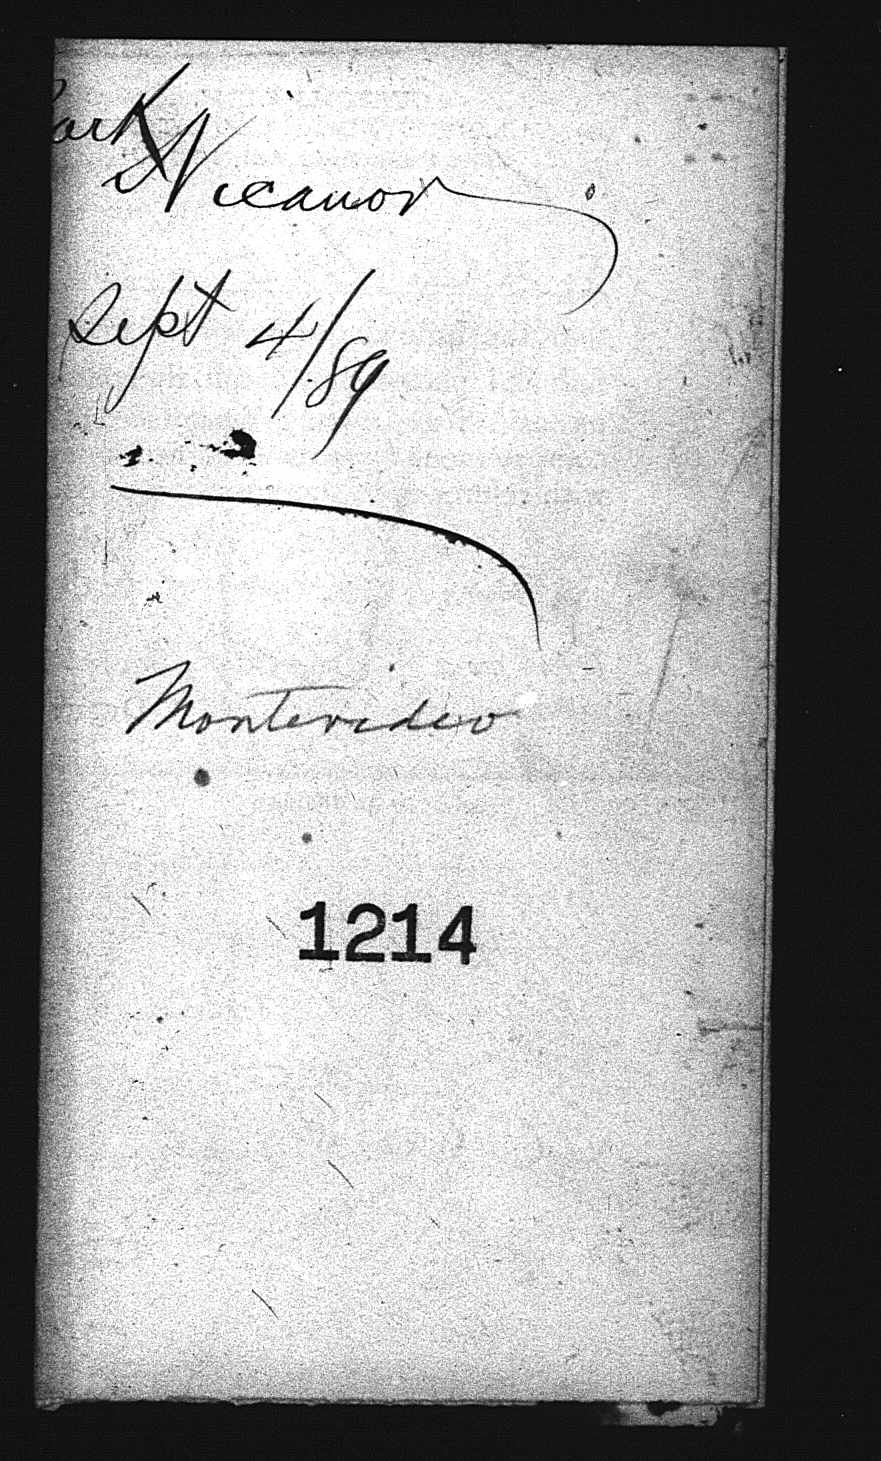 Bark
Nicanor
Sept 4/89
Montevideo
1214